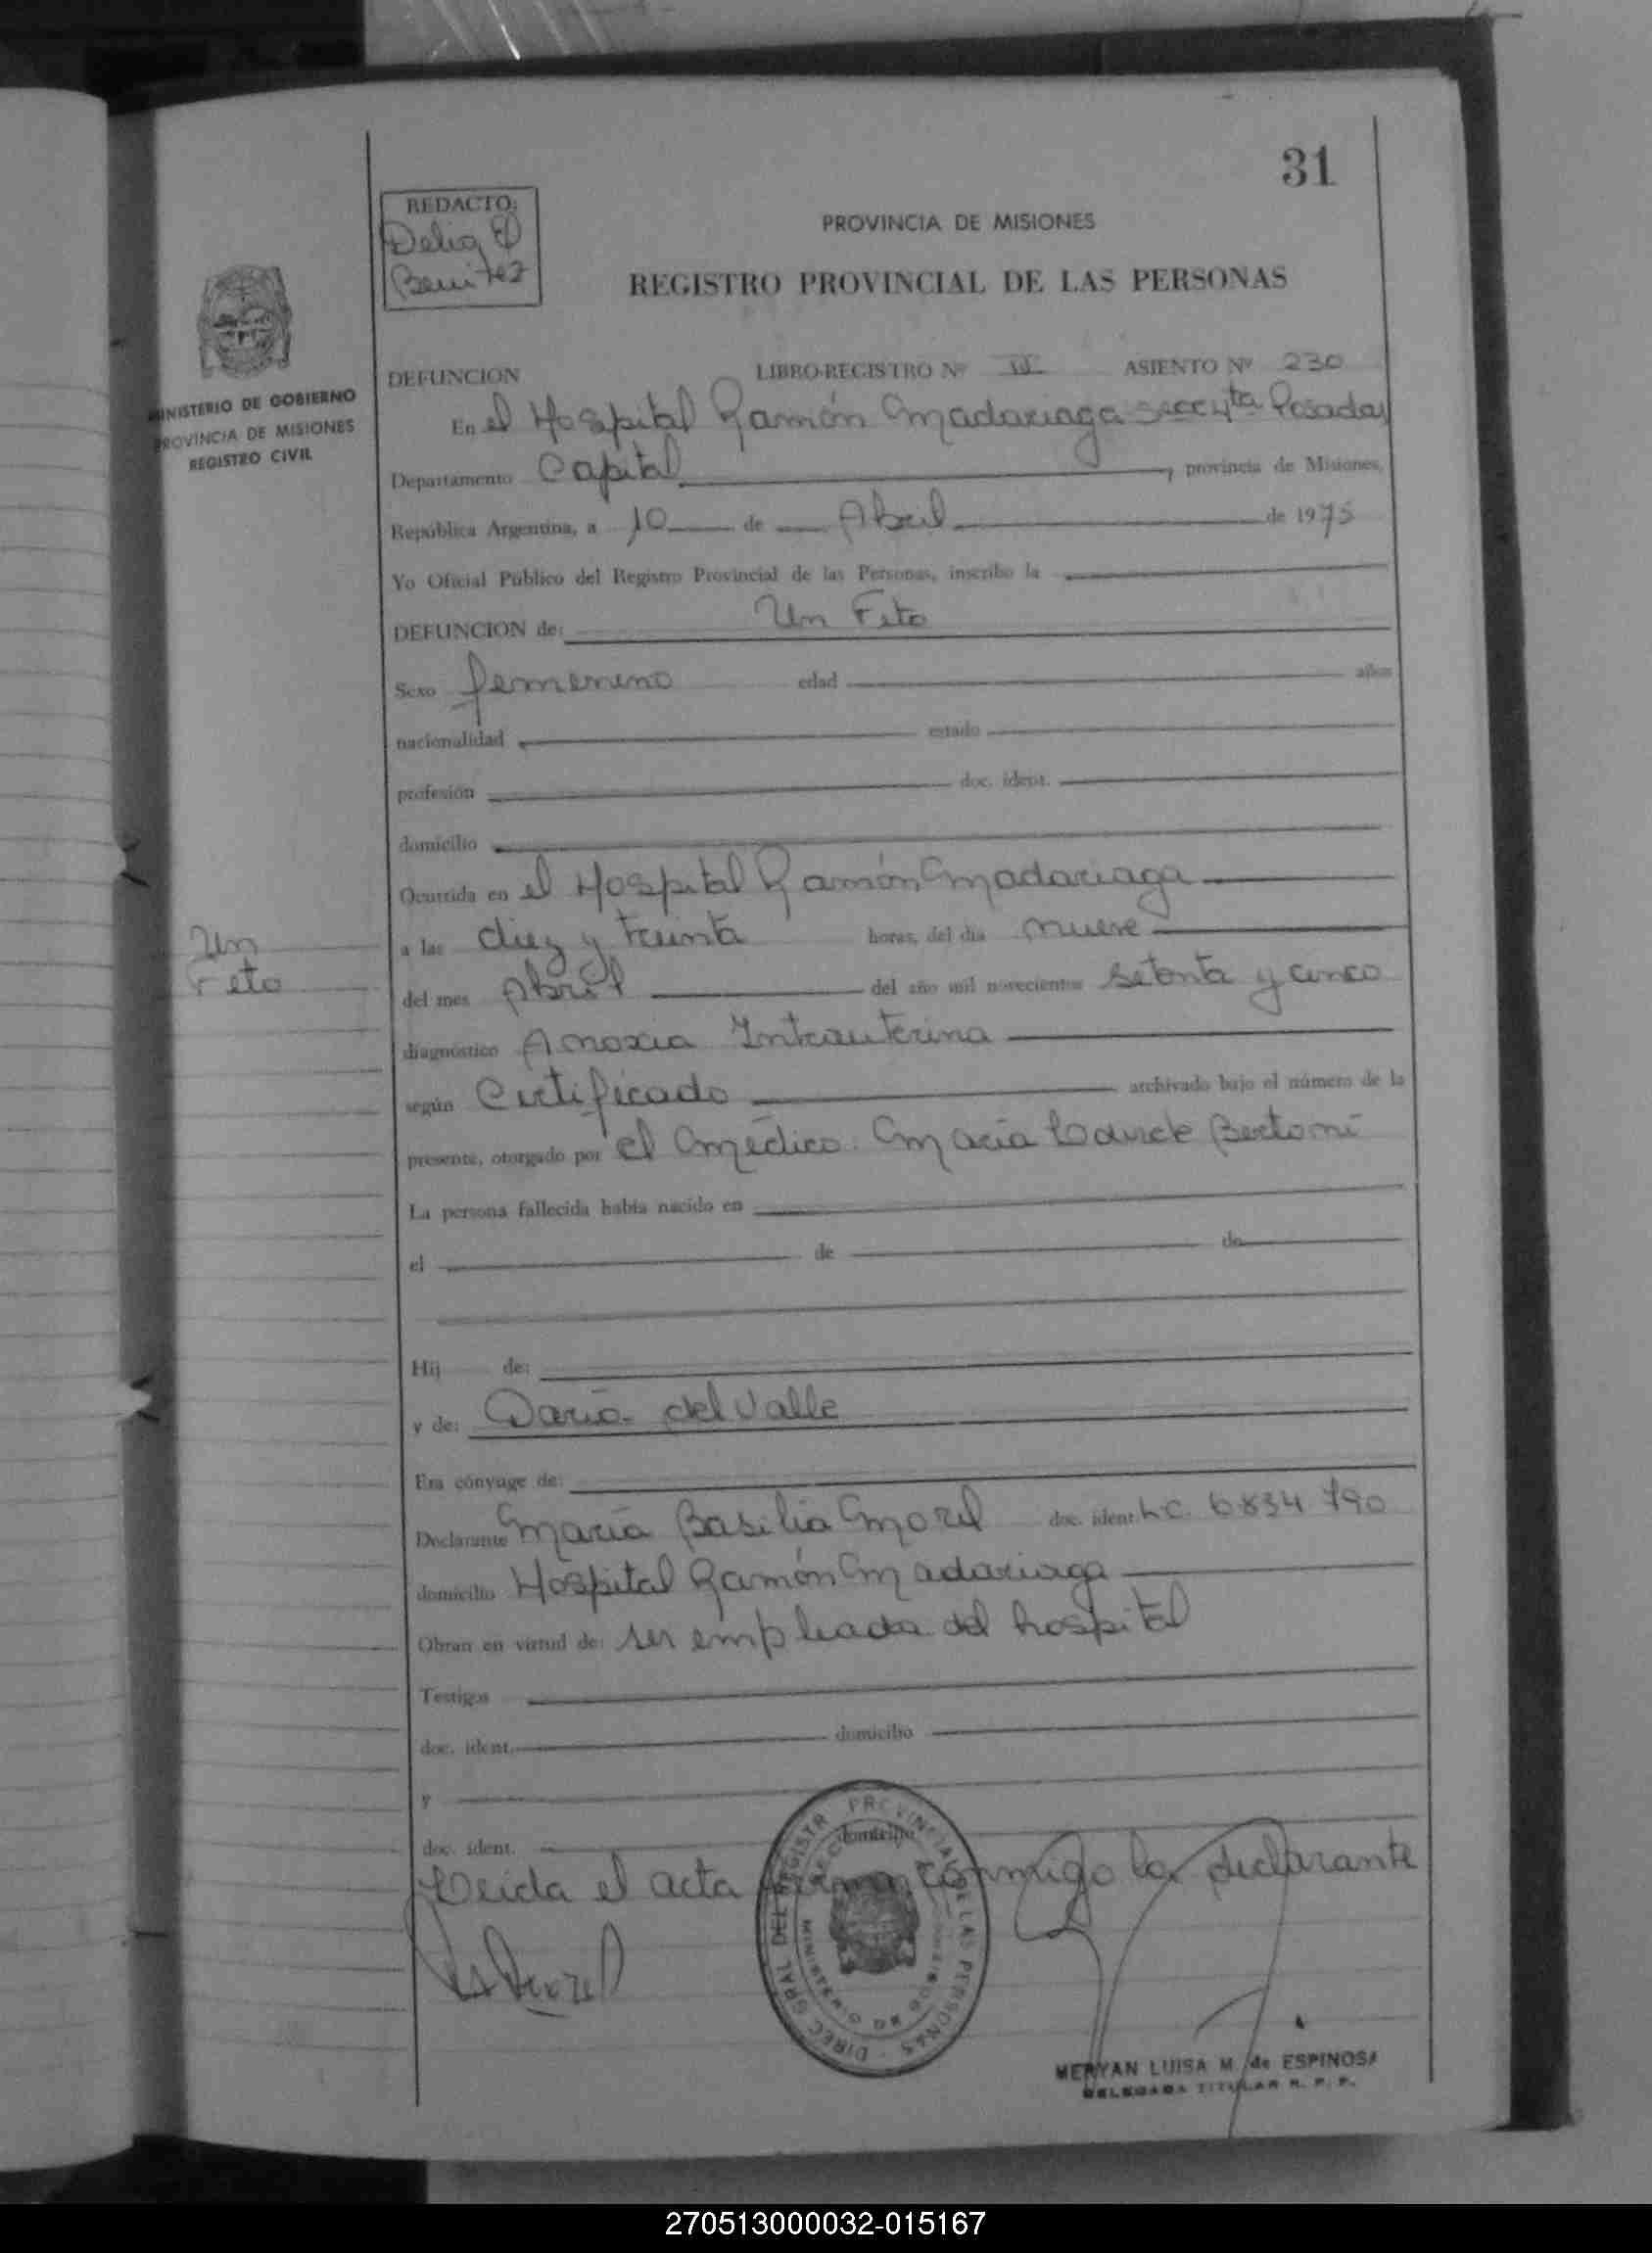 31
REDACTO:
Delia El
Benitez
PROVINCIA DE MISIONES
REGISTRO PROVINCIAL DE LAS PERSONAS
MINISTERIO DE GOBIERNO
PROVINCIA DE MISIONES
REGISTRO CIVIL
DEFUNCION LIBRO-REGISTRO Nº II ASIENTO Nº 230
En el Hospital Ramón Madariaga Secc 4ta Posadas
Departamento Capital, provincia de Misiones,
República Argentina, a 10 de Abril de 1975
Yo Oficial Público del Registro Provincial de las Personas, inscribo la
DEFUNCION de: Un Feto
Sexo femenino edad años
nacionalidad estado
profesión doc. ident.
domicilio
Ocurrida en el Hospital Ramón Madariaga
a las diez y treinta horas, del día nueve
Un
Feto
del mes Abril del año mil novecientos setenta y cinco
diagnóstico Anoxia Intrauterina
según Certificado archivado bajo el número de la
presente, otorgado por el médico. María Bertoni
La persona fallecida había nacido en
el de de
Hij de:
y de: Daria del Valle
Era cónyuge de:
Declarante María Basilia Morel doc. ident. L.C. 6834790
domicilio Hospital Ramón Madariaga
Obran en virtud de: ser empleada del hospital
Testigos
doc. ident. domicilio
y
doc. ident. domicilio
Leida el acta firma conmigo la declarante
DIREC GRAL DEL REGISTR PROVINCIAL DE LAS PERSONAS
MERYAN LUISA M. de ESPINOSA
DELEGADA TITULAR R. P. P.
270513000032-015167